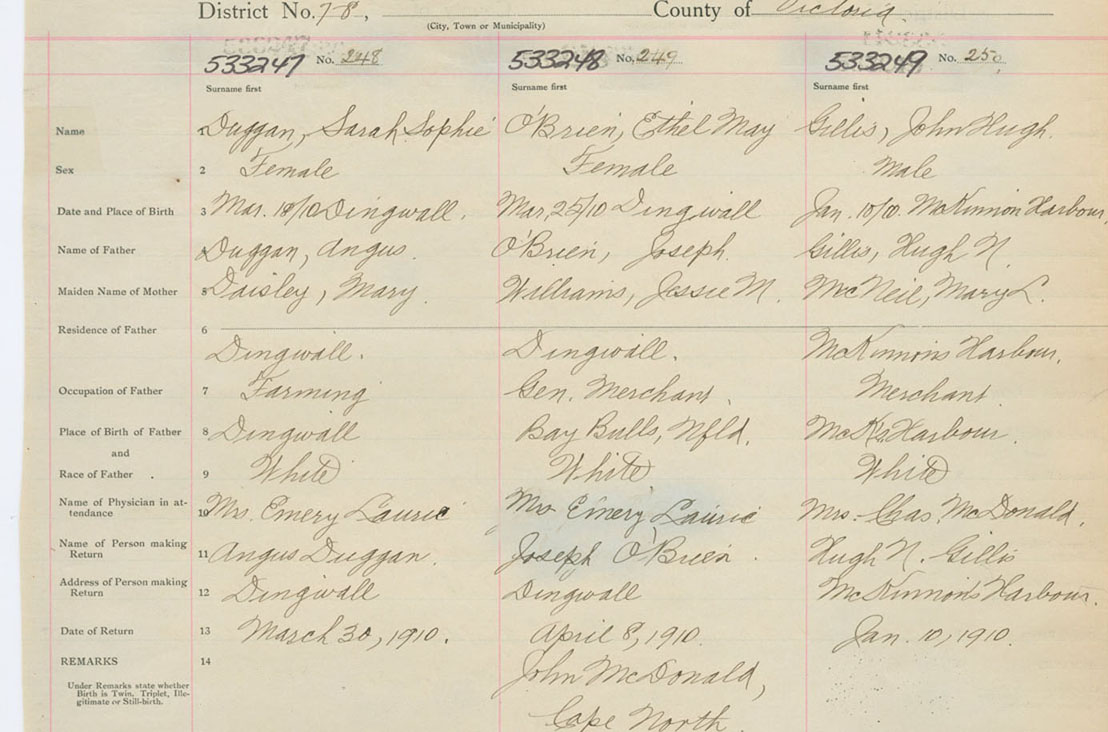 District No. 78, County of Victoria.
(City, Town or Municipality)
533247 No. 248 533248 No. 249 533249 No. 250
Surname first Surname first Surname first
Name 1 Duggan, Sarah Sophie O'Brien, Ethel May Gillis, John Hugh.
Sex 2 Female Female Male
Date and Place of Birth 3 Mar. 18/10 Dingwall. Mar. 25/10 Dingwall Jan. 10/10. McKinnon Harbour,
Name of Father 4 Duggan, Angus. O'Brien, Joseph. Gillis, Hugh N.
Maiden Name of Mother 5 Daisley, Mary. Williams, Jessie M. McNeil, Mary L.
Residence of Father 6
Dingwall. Dingwall. McKinnons Harbour.
Occupation of Father 7 Farming Gen. Merchant. Merchant.
Place of Birth of Father 8 Dingwall Bay Bulls, Nfld. McK's Harbour.
and
Race of Father . 9 White White White
Name of Physician in at-
tendance 10 Mrs. Emery Laurie Mrs. Emery Laurie Mrs. Chas. McDonald.
Name of Person making
Return 11 Angus Duggan. Joseph O'Brien. Hugh N. Gillis
Address of Person making
Return 12 Dingwall Dingwall McKinnon's Harbour.
Date of Return 13 March 30, 1910. April 8, 1910. Jan. 10, 1910.
REMARKS 14
John McDonald,
Under Remarks state whether
Birth is Twin, Triplet, Ille-
gitimate or Still-birth.
Cape North.